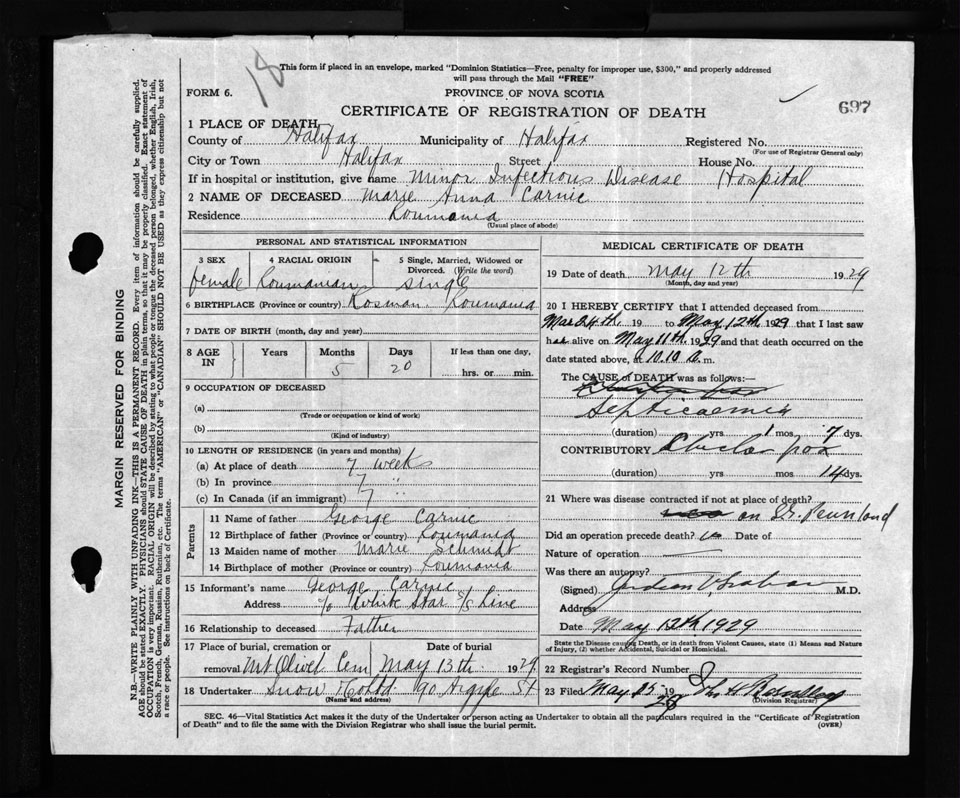 18
This form if placed in an envelope, marked "Dominion Statistics—Free, penalty for improper use, $300," and properly addressed
will pass through the Mail "FREE"
FORM 6.
PROVINCE OF NOVA SCOTIA
697
CERTIFICATE OF REGISTRATION OF DEATH
1 PLACE OF DEATH
County of Halifax Municipality of Halifax Registered No.
(For use of Registrar General only)
City or Town Halifax Street House No.
If in hospital or institution, give name Minor Infectious Disease Hospital
2 NAME OF DECEASED Marie Anna Carnic
Residence Roumania
(Usual place of abode)
PERSONAL AND STATISTICAL INFORMATION
3 SEX 4 RACIAL ORIGIN 5 Single, Married, Widowed or
Divorced. (Write the word)
female Roumanian single
6 BIRTHPLACE (Province or country) Roumania
7 DATE OF BIRTH (month, day and year)
8 AGE IN Years Months Days If less than one day,
5 20 hrs. or min.
9 OCCUPATION OF DECEASED
(a)
(Trade or occupation or kind of work)
(b)
(Kind of industry)
10 LENGTH OF RESIDENCE (in years and months)
(a) At place of death 7 weeks
(b) In province 7 "
(c) In Canada (if an immigrant) 7
Parents
11 Name of father George Carnic
12 Birthplace of father (Province or country) Roumania
13 Maiden name of mother Marie Schmidt
14 Birthplace of mother (Province or country) Roumania
15 Informant's name George Carnic
Address c/o White Star S/S Line
16 Relationship to deceased Father
17 Place of burial, cremation or Date of burial
removal Mt Olivet Cem May 13th 1929
18 Undertaker Snow & Co Ltd 90 Argyle St
(Name and address)
MEDICAL CERTIFICATE OF DEATH
19 Date of death May 12th 1929
(Month, day and year)
20 I HEREBY CERTIFY that I attended deceased from
Mar 24th 19 to May 12th 1929 that I last saw
her alive on May 11th 1929 and that death occurred on the
date stated above, at 10.10 a.m.
The CAUSE of DEATH was as follows:—
Septicaemia
(duration) yrs 1 mos 7 dys.
CONTRIBUTORY
(duration) yrs mos 14 dys.
21 Where was disease contracted if not at place of death?
on SS. Pennland
Did an operation precede death? Date of
Nature of operation
Was there an autopsy?
(Signed) M.D.
Address
Date May 12th 1929
State the Disease causing Death, or in death from Violent Causes, state (1) Means and Nature
of Injury, (2) whether Accidental, Suicidal or Homicidal.
22 Registrar's Record Number
23 Filed May 19
(Division Registrar)
SEC. 46—Vital Statistics Act makes it the duty of the Undertaker or person acting as Undertaker to obtain all the particulars required in the "Certificate of Registration
of Death" and to file the same with the Division Registrar who shall issue the burial permit.
(OVER)
MARGIN RESERVED FOR BINDING
N.B.—WRITE PLAINLY WITH UNFADING INK—THIS IS A PERMANENT RECORD. Every item of information should be carefully supplied.
AGE should be stated EXACTLY. PHYSICIANS should STATE CAUSE OF DEATH in plain terms, so that it may be properly classified. Exact statement of
OCCUPATION is very important. RACIAL ORIGIN will be described by stating to what people or tongue the deceased person belonged, whether English, Irish,
Scotch, French, German, Russian, Ruthenian, etc. The terms "AMERICAN" or "CANADIAN" SHOULD NOT BE USED as they express citizenship but not
a race or people. See instructions on back of Certificate.